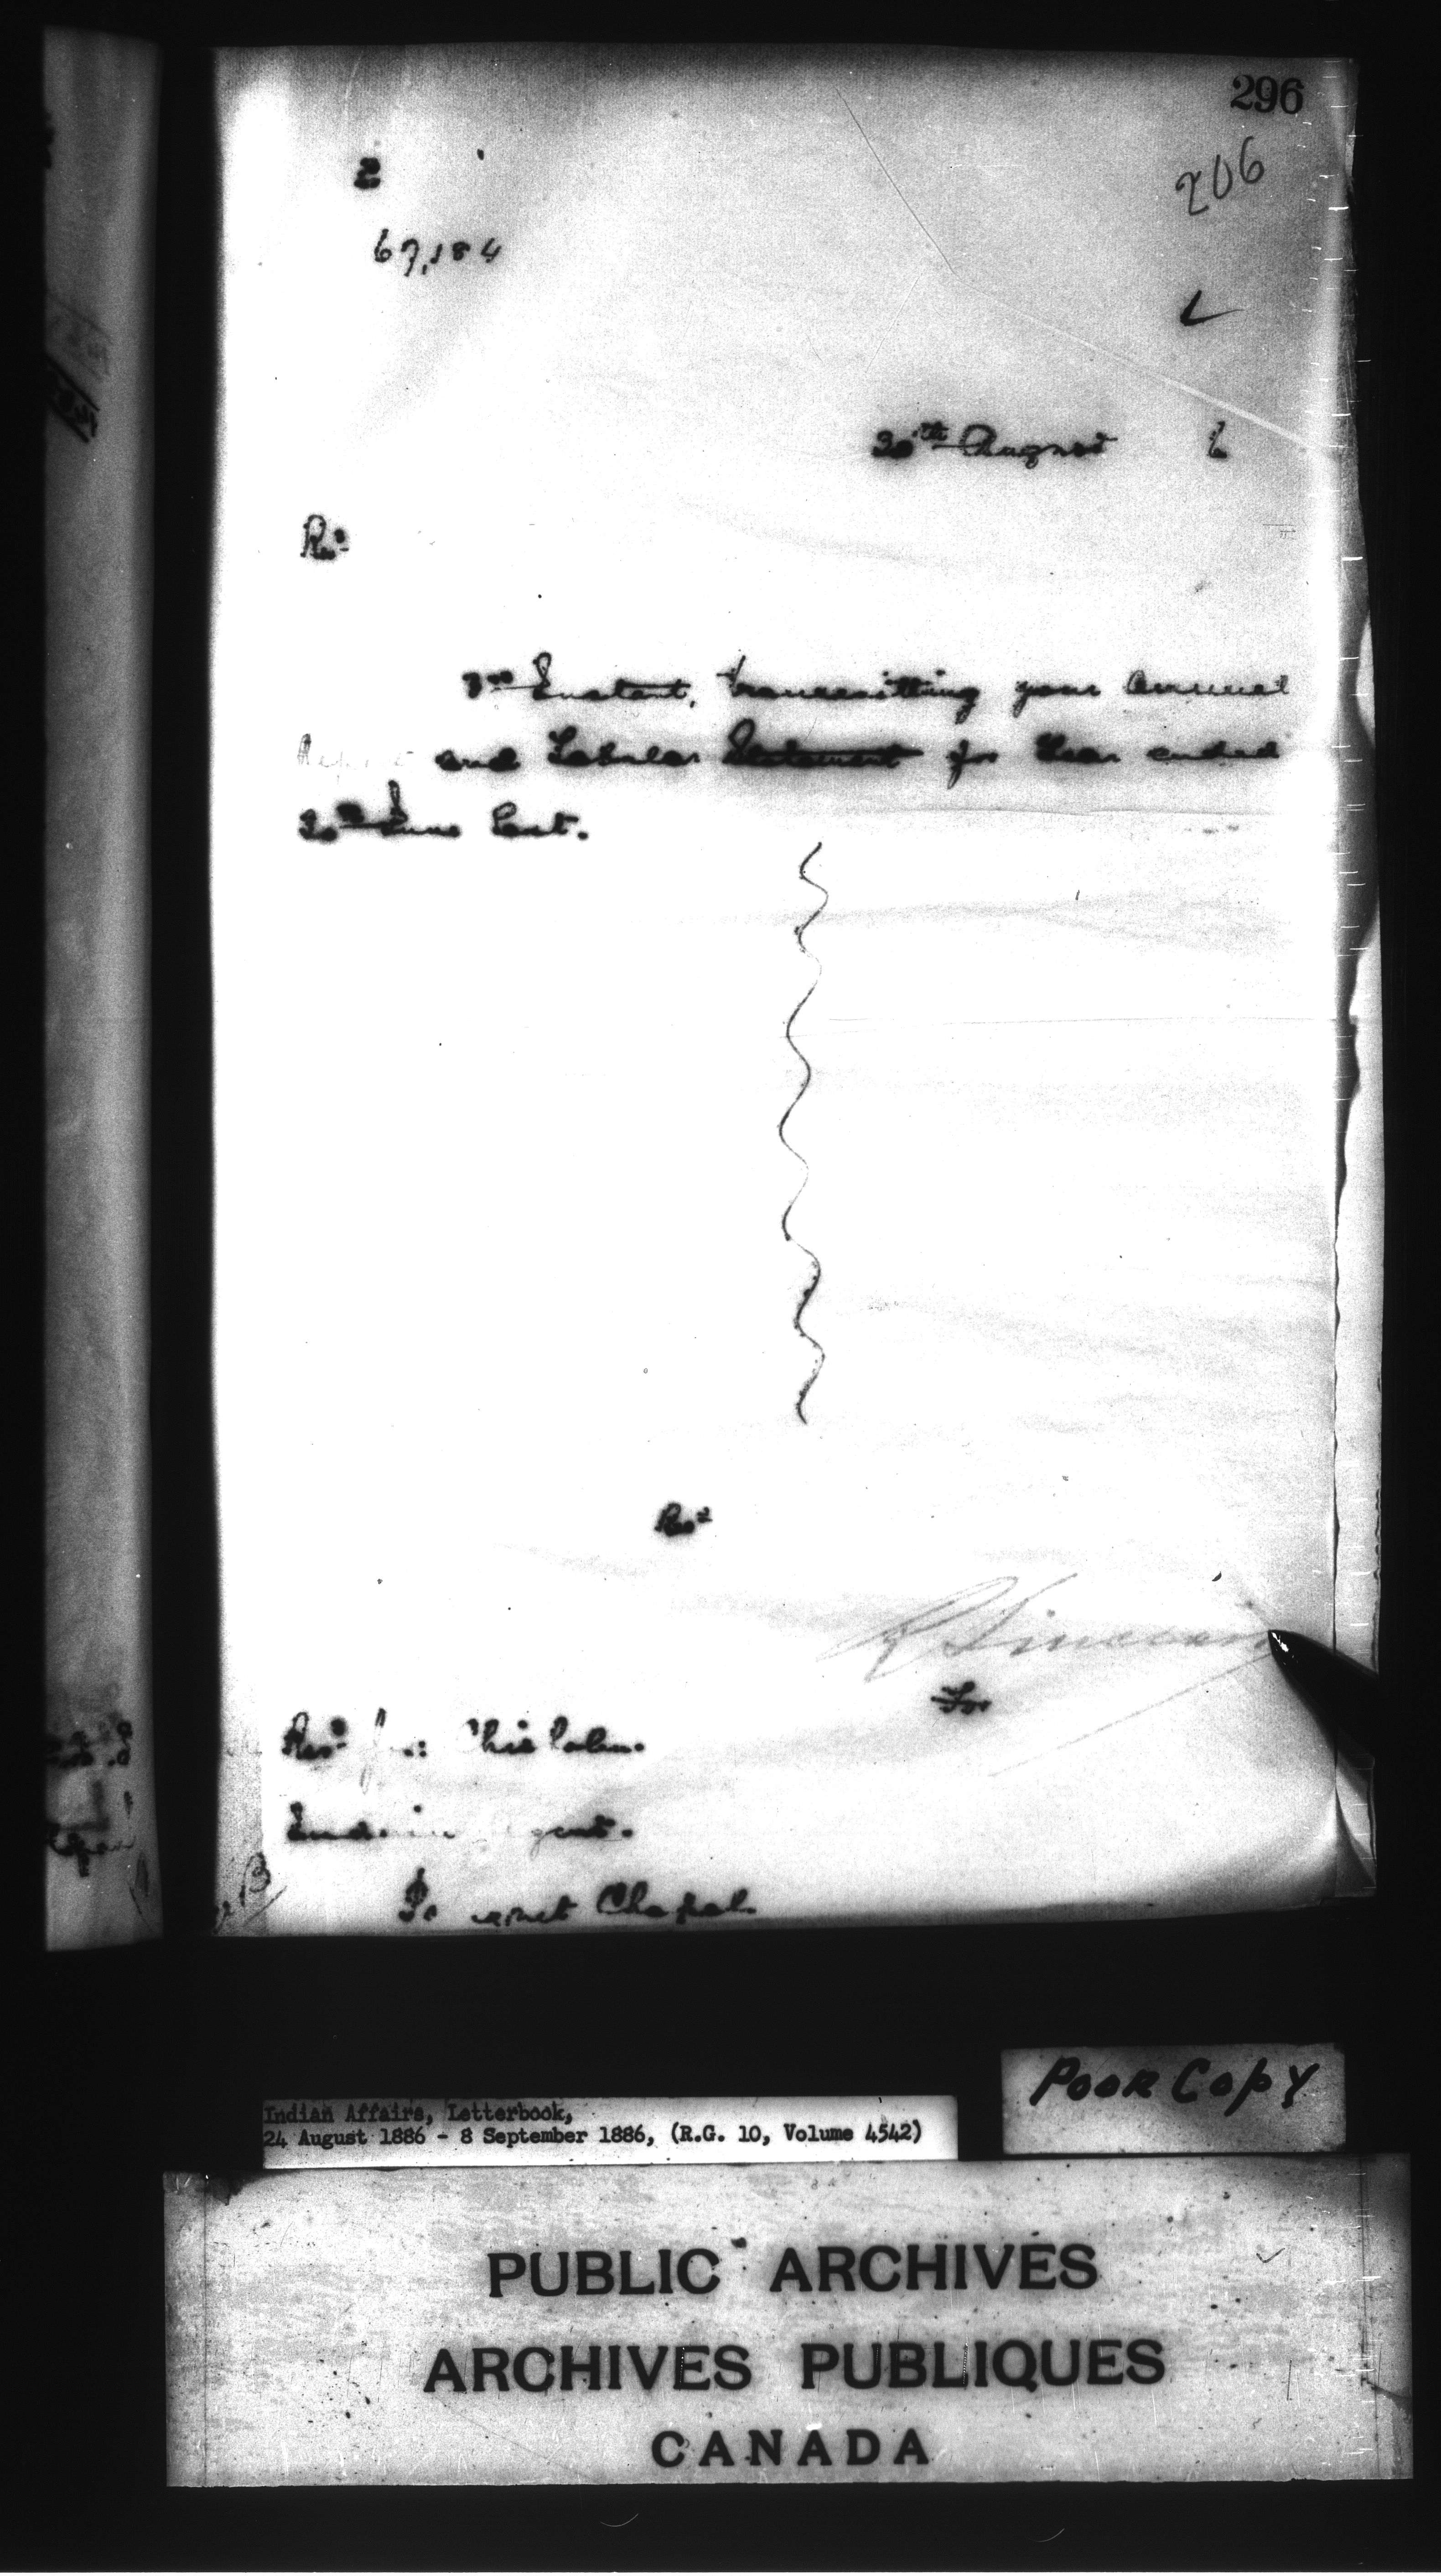 296
206
2
67,184
L
30th August 6
Revd
3rd Instant, transmitting your Annual
Report and Tabular Statement for Year ended
30th June last.
Revd
R Sinclair
For
Revd Chisholm.
Indian Agent.
Chapel
Poor Copy
Indian Affairs, Letterbook,
24 August 1886 - 8 September 1886, (R.G. 10, Volume 4542)
PUBLIC ARCHIVES
ARCHIVES PUBLIQUES
CANADA